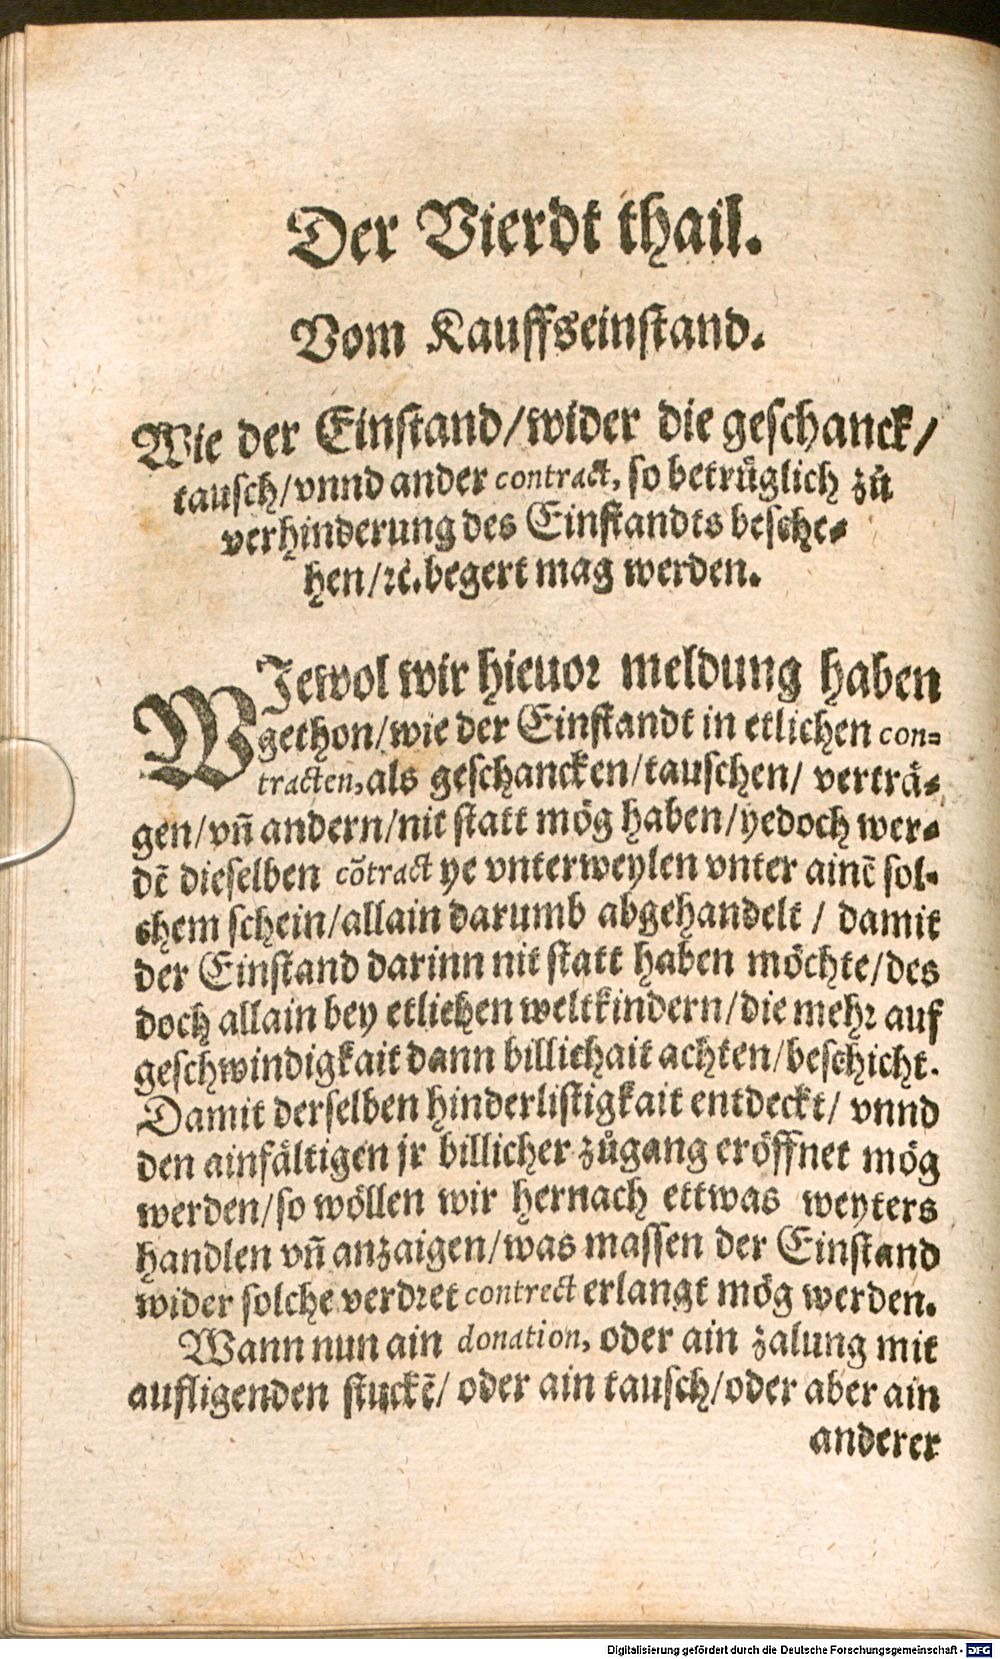 Der Vierdt thail.
Vom Kauffseinstand.
Wie der Einstand/wider die geschanck/
tausch/vnnd ander contract, so betrüglich zů
verhinderung des Einstandts besche-
hen/ꝛc̃.begert mag werden.
WIewol wir hieuor meldung haben
gethon/wie der Einstandt in etlichen con-
tracten,als geschancken/tauschen/ verträ-
gen/vñ andern/nit statt mög haben/yedoch wer-
dẽ dieselben cõtract ye vnterweylen vnter ainẽ sol-
chem schein/allain darumb abgehandelt / damit
der Einstand darinn nit statt haben möchte/des
doch allain bey etlichen weltkindern/die mehr auf
geschwindigkait dann billichait achten/beschicht.
Damit derselben hinderlistigkait entdeckt/ vnnd
den ainfältigen jr billicher zůgang eröffnet mög
werden/so wöllen wir hernach ettwas weyters
handlen vñ anzaigen/was massen der Einstand
wider solche verdret contrect erlangt mög werden.
Wann nun ain donation, oder ain zalung mit
aufligenden stuckẽ/ oder ain tausch/oder aber ain
anderer
Digitalisierung gefördert durch die Deutsche Forschungsgemeinschaft - DFG